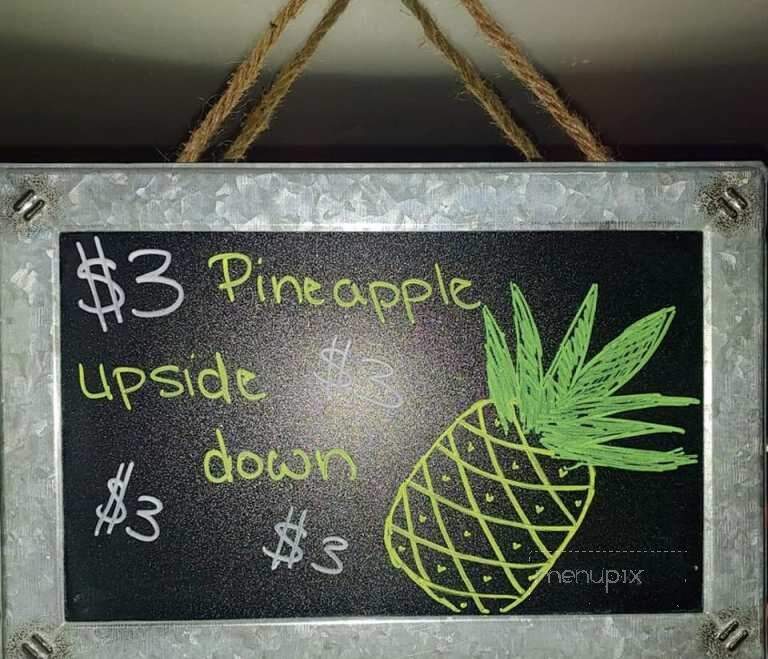 $3 Pineapple
upside $3
down
$3
$3
menupix